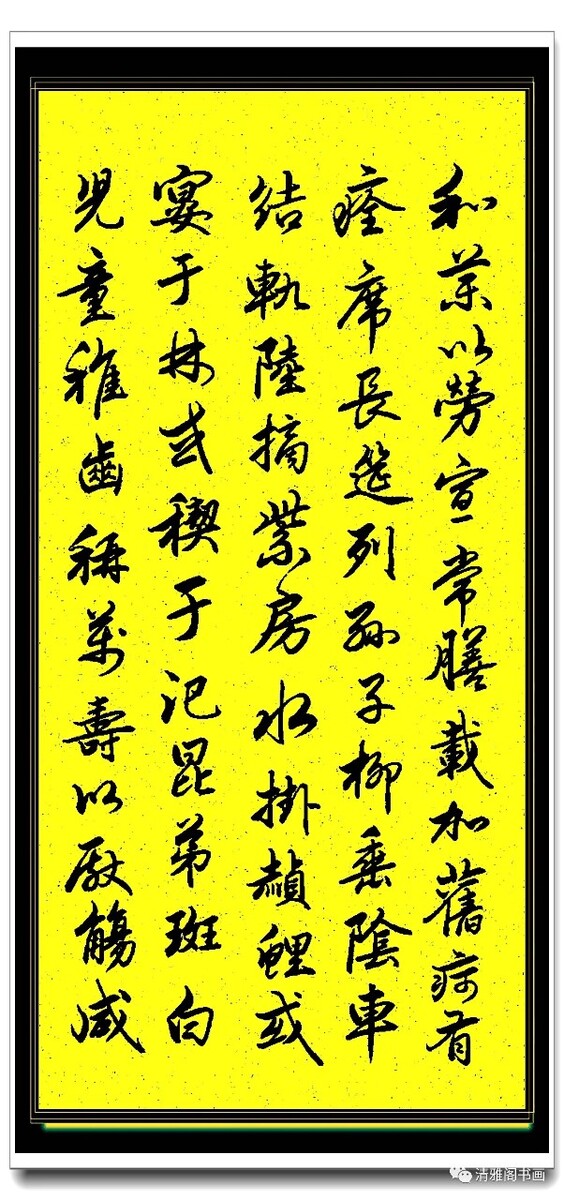 和藥以勞宣常膳載加舊痾有
痊席長筵列孫子柳垂陰車
結軌陸摘紫房水掛赬鯉或
宴于林或禊于汜昆弟斑白
兒童稚齒稱萬壽以獻觴咸
清雅阁书画